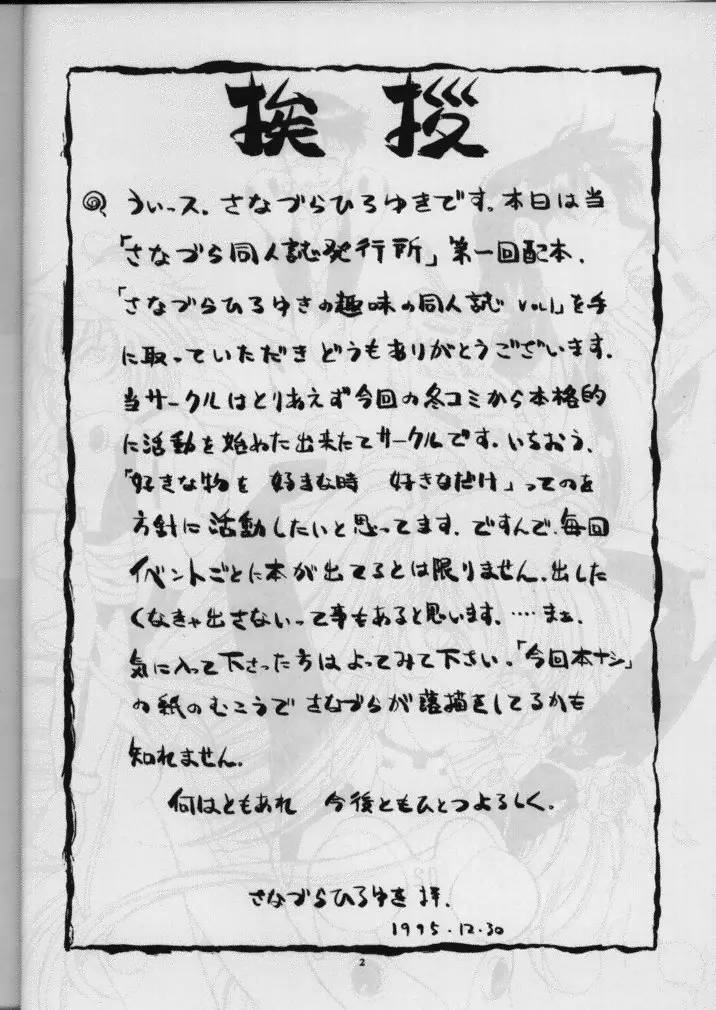 挨拶
うぃース．さなづらひろゆきです．本日は当
「さなづら同人誌発行所」第一回配本．
「さなづらひろゆきの趣味の同人誌 vol1」を手
に取っていただき どうもありがとうございます．
当サークルはとりあえず今回の冬コミから本格的
に活動を始めた出来たてサークルです．いちおう、
「好きな物を 好きな時 好きなだけ」ってのを
方針に活動したいと思ってます．ですんで、毎回
イベントごとに本が出てるとは限りません．出した
くなきゃ出さないって事もあると思います．…まぁ、
気に入って下さった方はよってみて下さい．「今回本ナシ」
の紙のむこうで さなづらが落描きをしてるかも
知れません．
何はともあれ 今後ともひとつよろしく．
さなづらひろゆき 拝．
1995.12.30
2